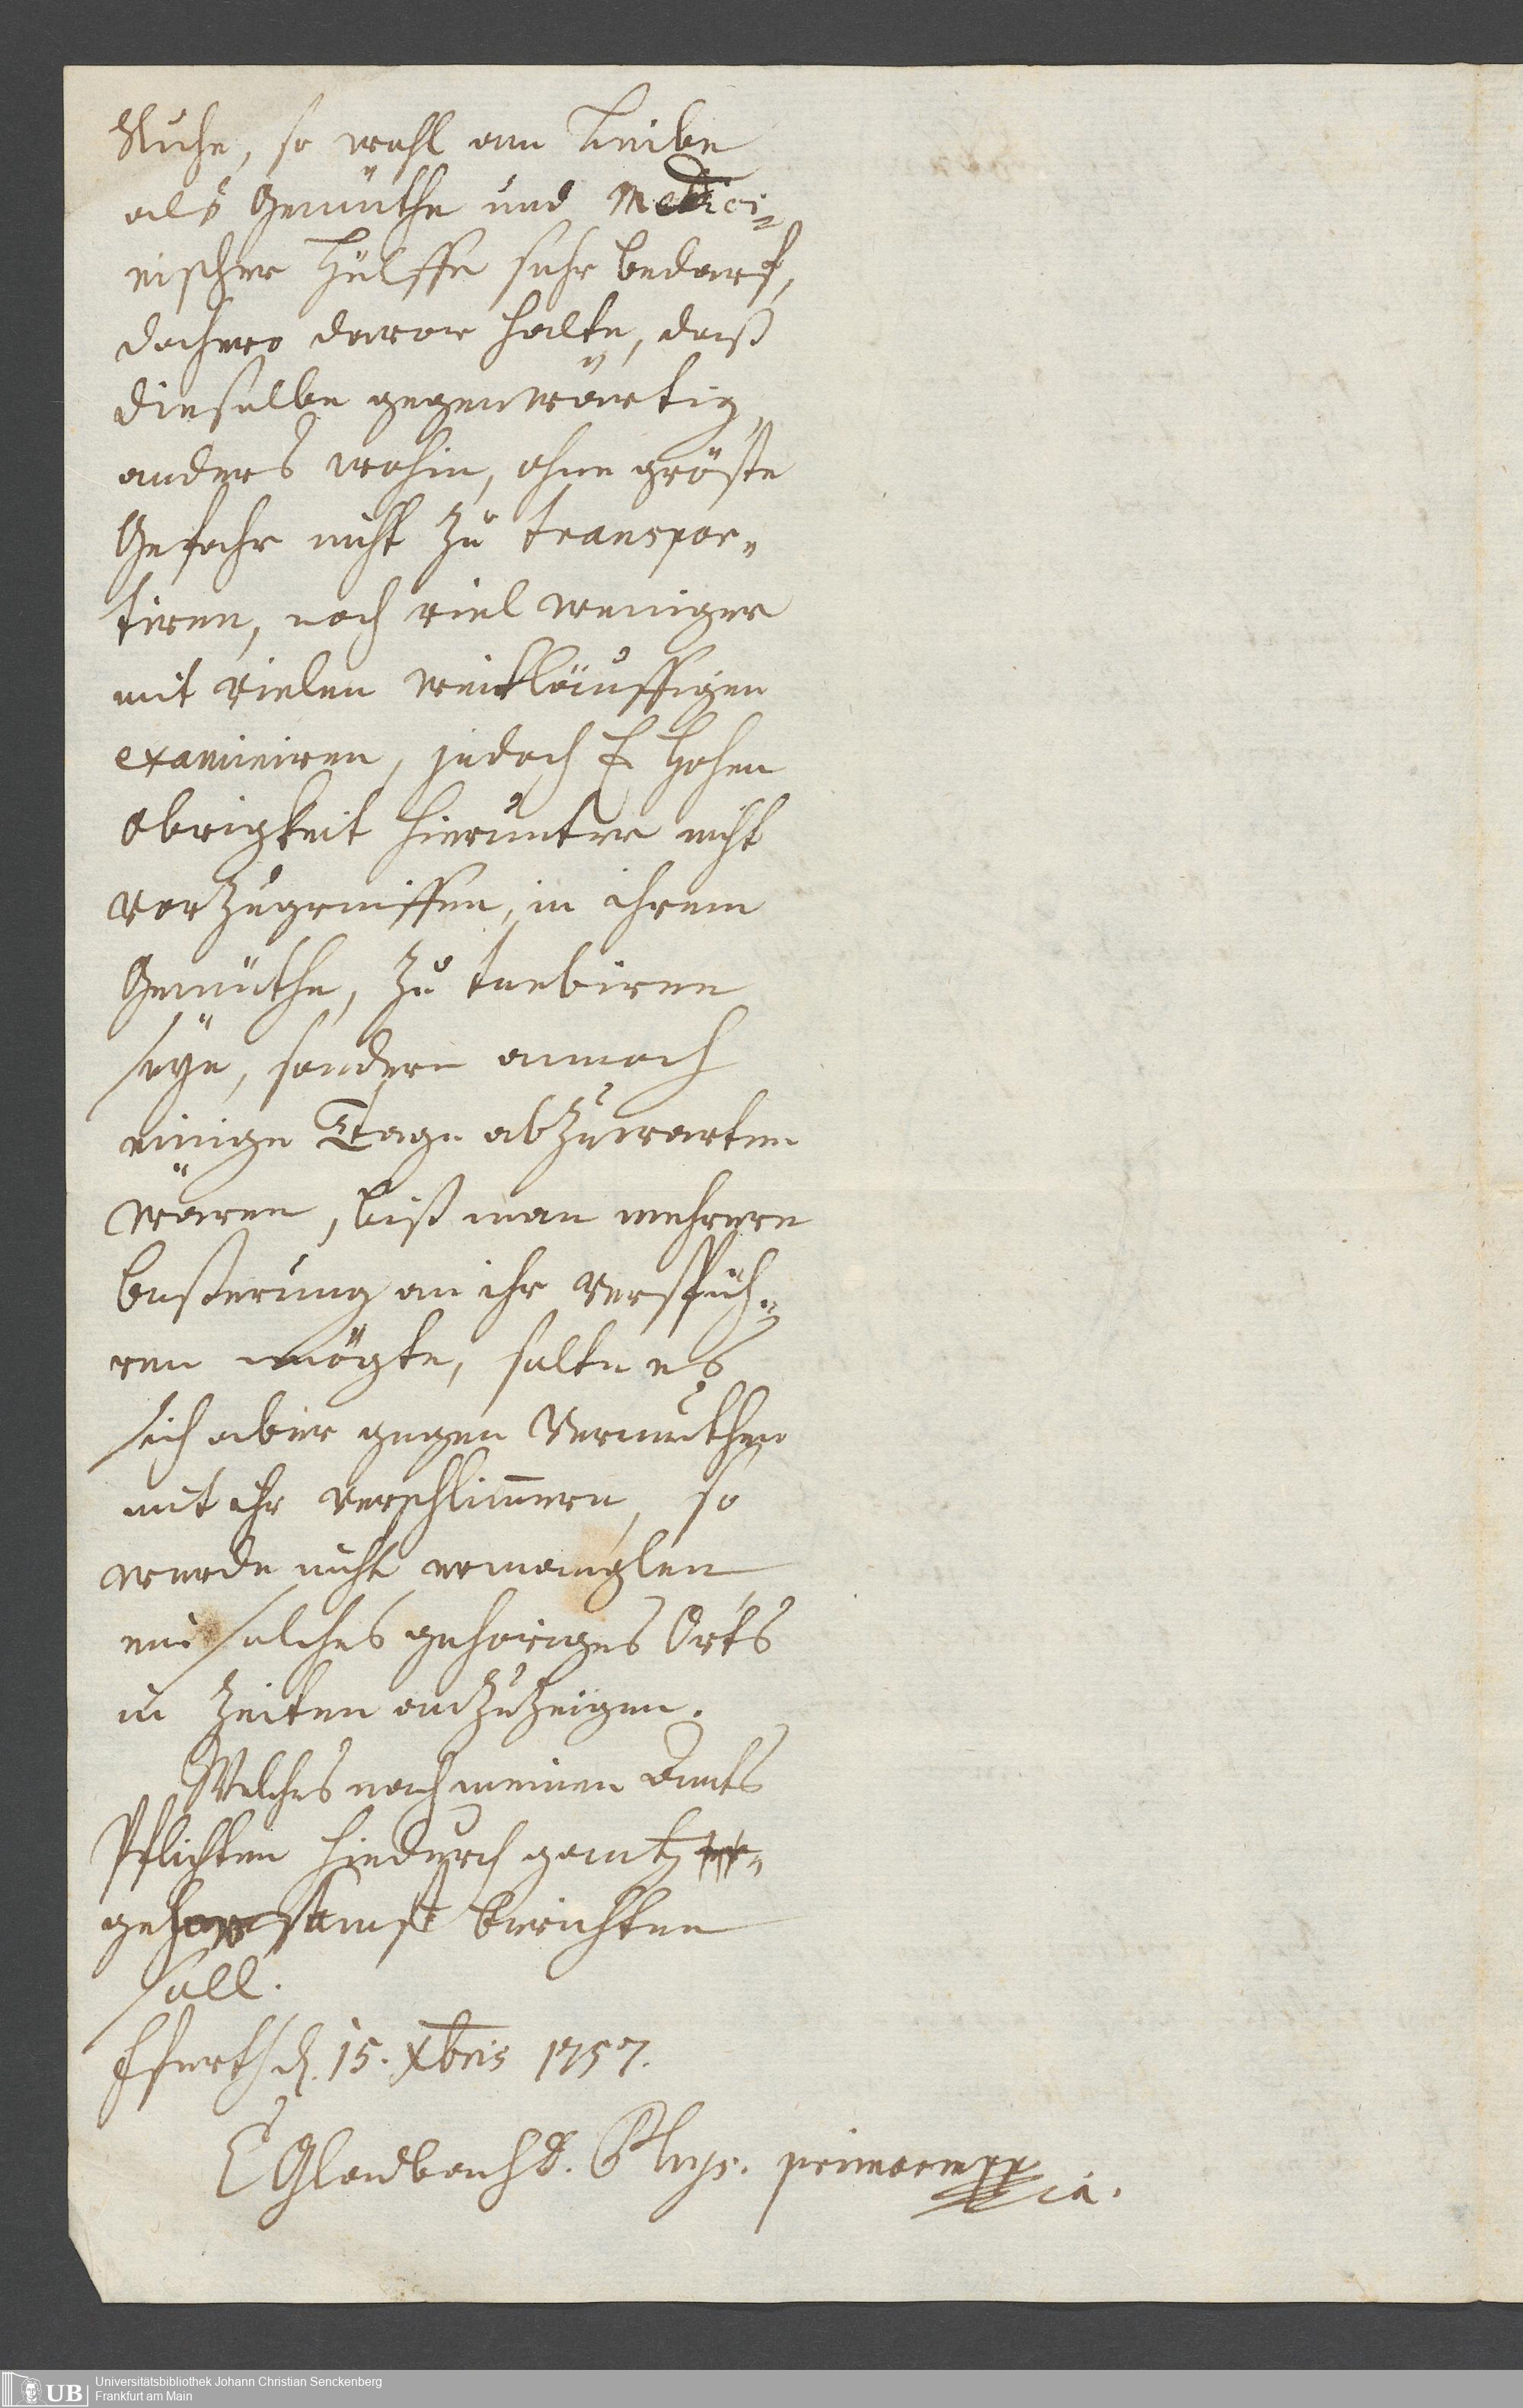 Ruhe, so wohl am Leibe
als Gemüthe und Medici-
nischer Hülffe sehr bedarf,
dahero davor halte, daß
dieselbe gegenwärtig
anders wohin, ohne gröste
Gefahr nicht zu transpor-
tiren, noch viel weniger
mit vielen weitläuffigen
examiniren, jedoch E. Hohen
Obrigkeit hierunter nicht
vorzugreiffen, in ihrem
Gemüthe, zu turbiren
seÿe, sondern annoch
einige Tage abzuwarten
wären, biß man mehrere
beßerung an ihr verspüh-
ren mögte, solte es
sich aber gegen Vermuthen
mit ihr verschlim̅ern, so
werde nicht ermanglen
ein solches gehöriges Orts
in Zeiten anzuzeigen.
Welches nach meinen Amts
Pflichten hiedurch gantz
gehorsamst berichten
soll.
Ffurth d. 15. Xbris 1757.
Gladbach D. Phys. primar mppria.
UB Universitätsbibliothek Johann Christian Senckenberg
Frankfurt am Main